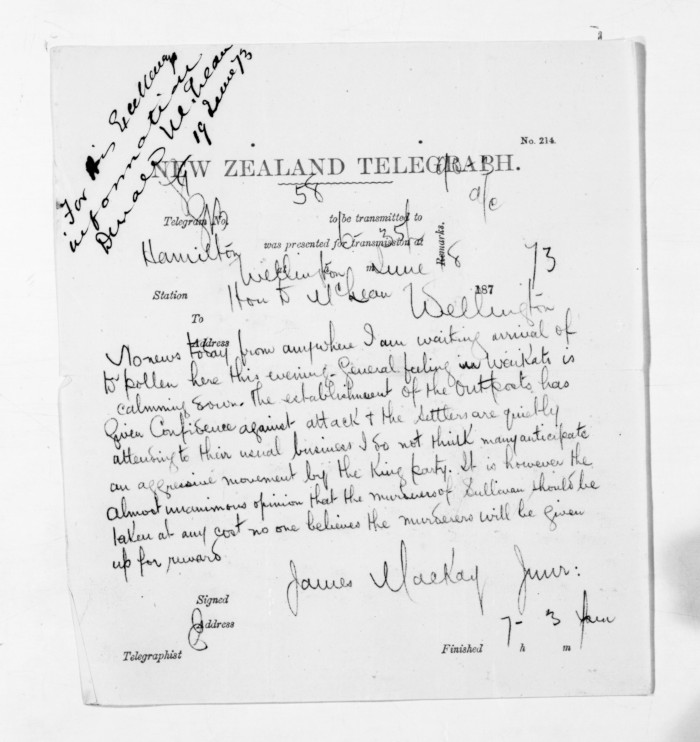 For His Excellency's
information
Donald McLean
19 June 73
No. 214.
NEW ZEALAND TELEGRAPH.
58
a/c
Telegram No. to be transmitted to
Hamilton was presented for transmission at
Remarks.
Wellington m June 8 1873
Station Hon D McLean Wellington
To
Address
No news today from anywhere I am waiting arrival of
Dr Pollen here this evening. General feeling in Waikato is
calmming down. The establishment of the outposts has
given confidence against attack & the settlers are quietly
attending to their usual business I do not think many anticipate
an aggressive movement by the King party. It is however the
almost unanimous opinion that the murderers of Sullivan should be
taken at any cost no one believes the murderers will be given
up for reward
James Mackay Junr:
Signed
Address
7 - 3 pm
Telegraphist Finished h m